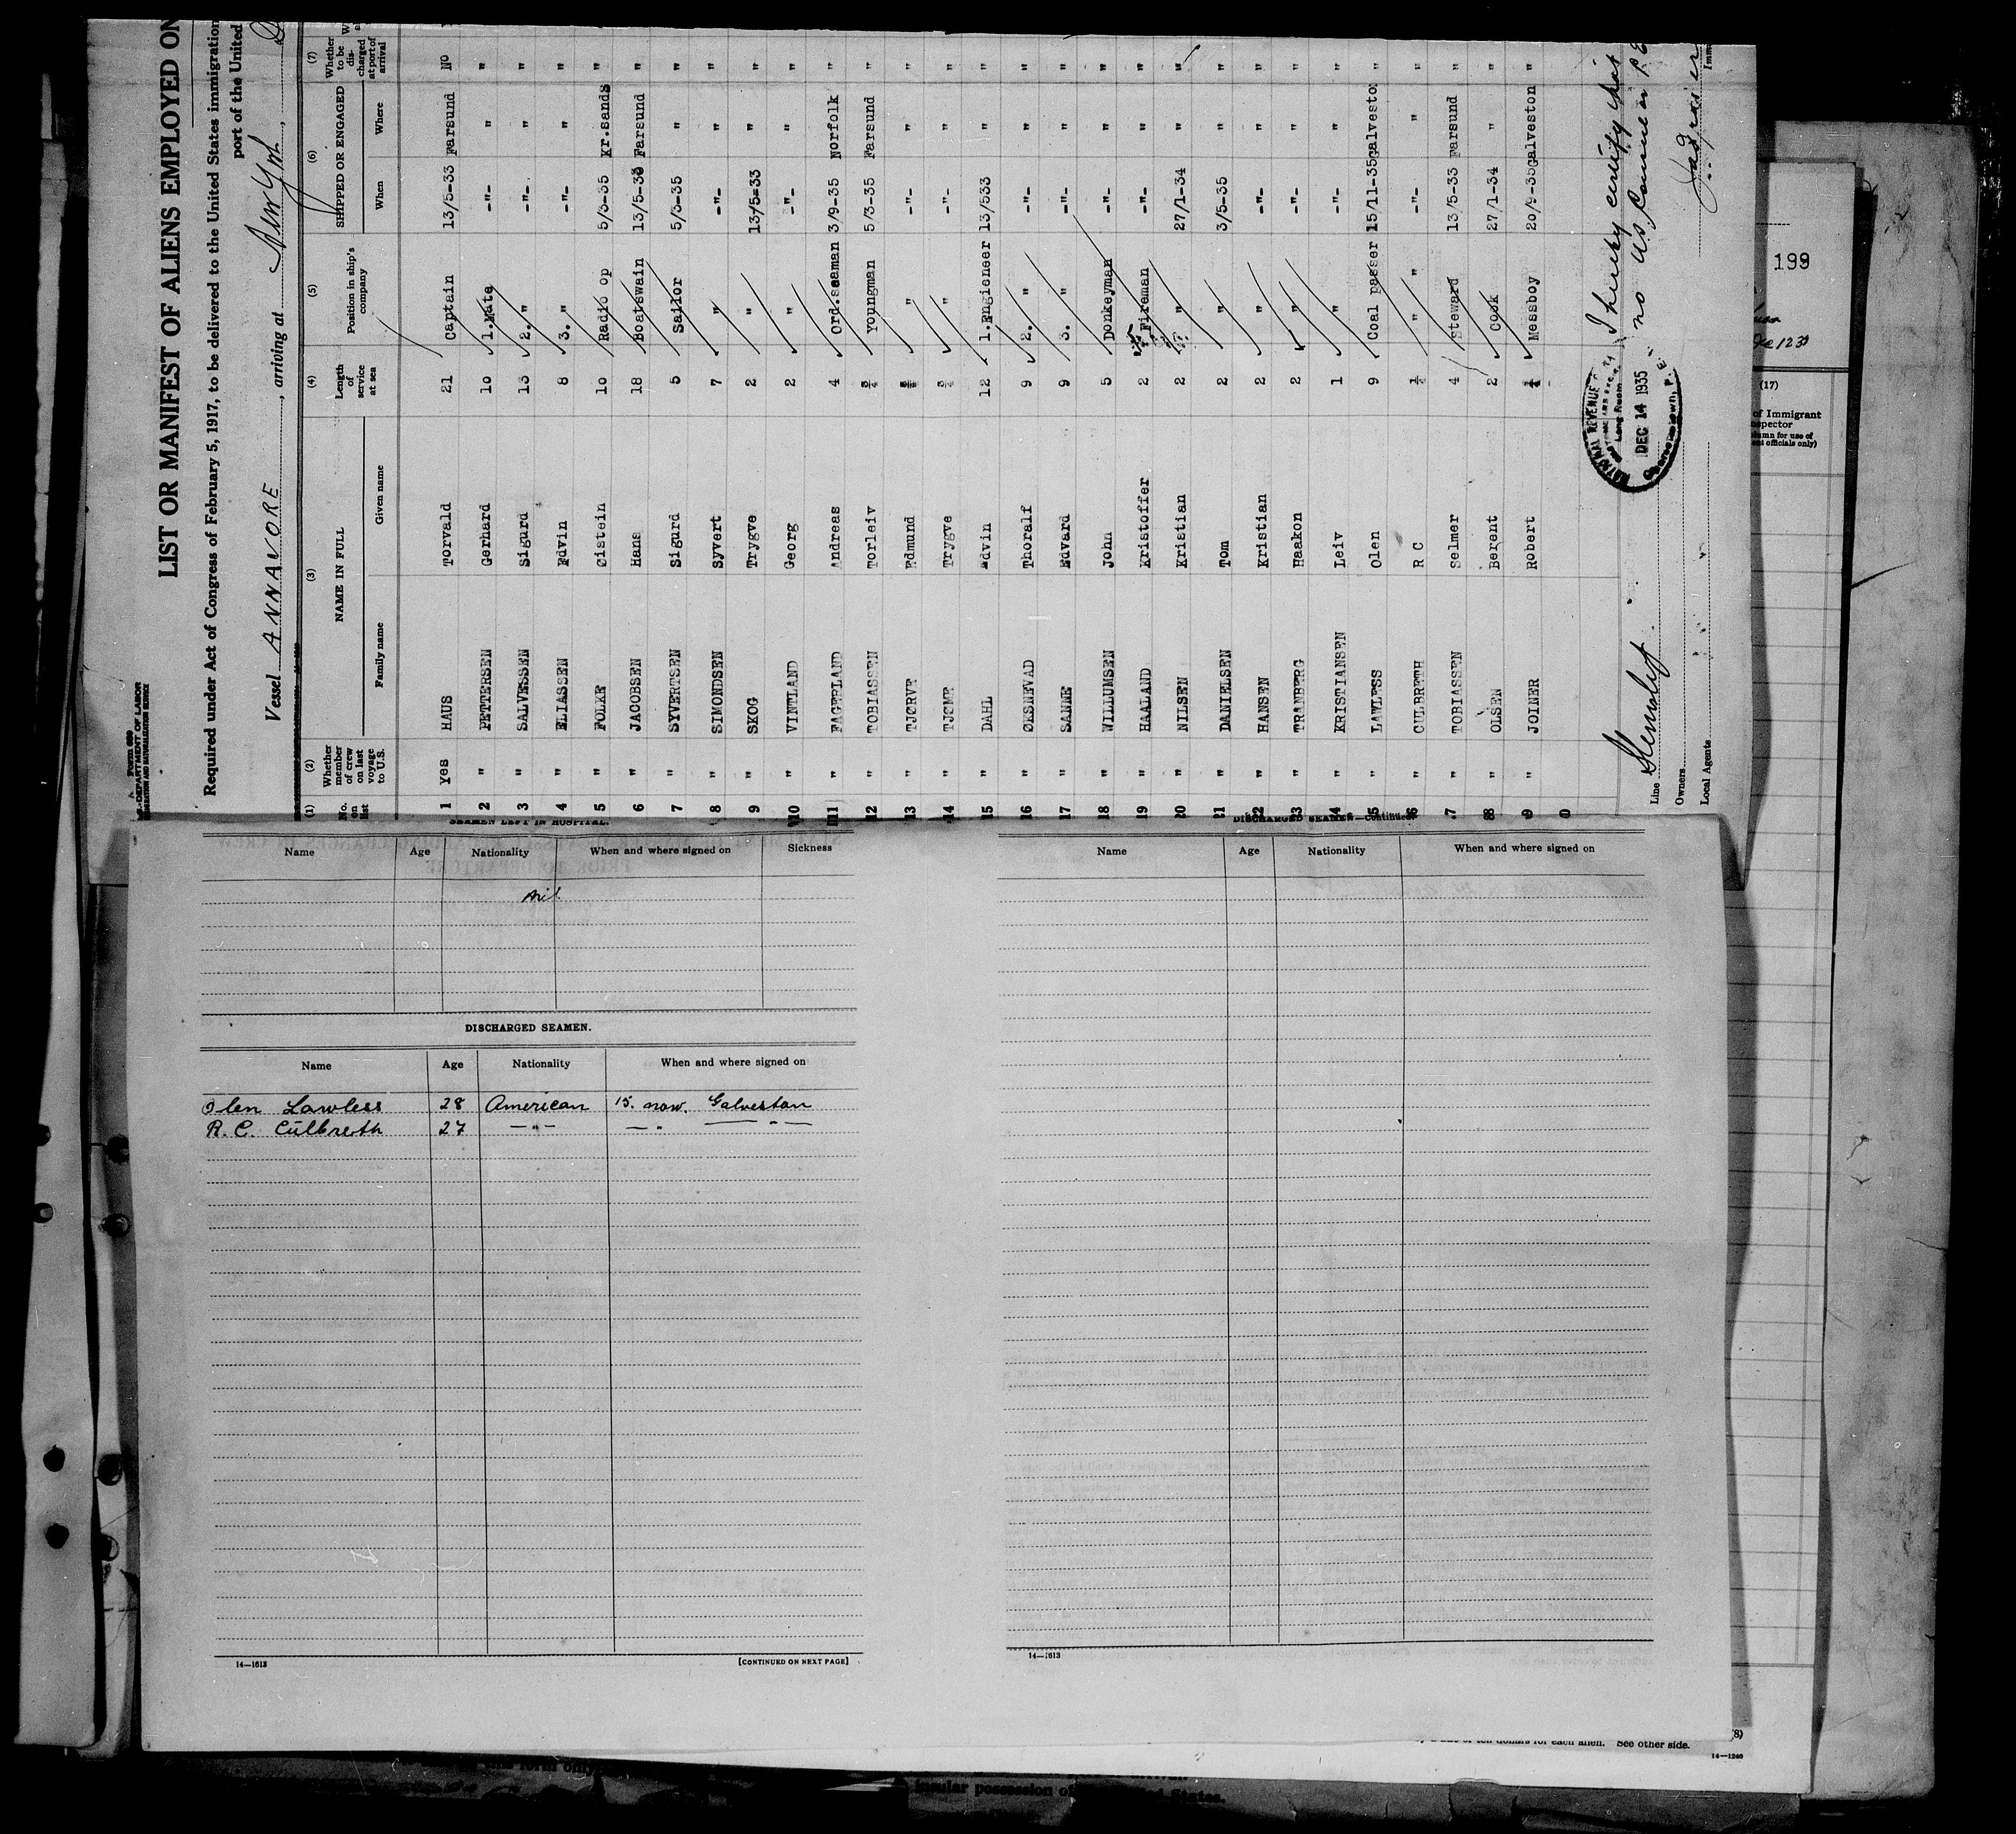 Form 680
U.S. DEPARTMENT OF LABOR
IMMIGRATION AND NATURALIZATION SERVICE
LIST OR MANIFEST OF ALIENS EMPLOYED ON
Required under Act of Congress of February 5, 1917, to be delivered to the United States immigration
port of the United
Vessel ANNAVORE, arriving at New York,
(1) No. on list (2) Whether member of crew on last voyage to U.S. (3) NAME IN FULL Family name Given name (4) Length of service at sea (5) Position in ship's company (6) SHIPPED OR ENGAGED When Where (7) Whether to be discharged at port of arrival
1 Yes HAUS Torvald 21 Captain 13/5-33 Farsund No
2 " PETTERSEN Gerhard 10 1.Mate -"- " "
3 " SALVESSEN Sigurd 13 2. " -"- " "
4 " ELIASSEN Edvin 8 3. " -"- " "
5 " FOLKE Øistein 10 Radio op 5/3-35 Kr.sands "
6 " JACOBSEN Hans 18 Boatswain 13/5-33 Farsund "
7 " SYVERTSEN Sigurd 5 Sailor 5/3-35 " "
8 " SIMONDSEN Syvert 7 " -"- " "
9 " SKOG Trygve 2 " 13/5-33 " "
10 " VINTLAND Georg 2 " -"- " "
11 " FAGERLAND Andreas 4 Ord.seaman 3/9-35 Norfolk "
12 " TOBIASSEN Torleiv 3/4 Youngman 5/3-35 Farsund "
13 " TJØRVE Edmund " -"- " "
14 " TJØMT Trygve 3/4 " -"- " "
15 " DAHL Edvin 12 1.Engieneer 13/533 " "
16 " ØKSNEVAD Thoralf 9 2. " -"- " "
17 " SANNE Edvard 9 3. " -"- " "
18 " WILLUMSEN John 5 Donkeyman -"- " "
19 " HAALAND Kristoffer 2 Fireman -"- " "
20 " NILSEN Kristian 2 " 27/1-34 " "
21 " DANIELSEN Tom 2 " 3/5-35 " "
22 " HANSEN Kristian 2 " -"- " "
23 " TRANBERG Haakon 2 " -"- " "
24 " KRISTIANSEN Leiv 1 " -"- " "
25 " LAWLESS Olen 9 Coal passer 15/11-35 Galvesto "
26 " CULBRETH R C " -"- " "
27 " TOBIASSEN Selmer 4 Steward 13/5-33 Farsund "
28 " OLSEN Berent 2 Cook 27/1-34 " "
29 " JOINER Robert Messboy 20/9-35 Galveston "
I hereby certify that
no U.S. Consul in P.E
NATIONAL REVENUE
Long Room
DEC 14 1935
Charlottetown, P. E.
Line
Owners
Local Agents
199
(17)
of Immigrant
Inspector
SEAMEN LEFT IN HOSPITAL.
Name Age Nationality When and where signed on Sickness
nil
DISCHARGED SEAMEN.
Name Age Nationality When and where signed on
Olen Lawless 28 American 15. nov. Galveston
R. C. Culbreth 27 -"- -"- -"-
14—1613 [CONTINUED ON NEXT PAGE]
DISCHARGED SEAMEN—Continued
Name Age Nationality When and where signed on
14—1613
(8)
of ten dollars for each alien. See other side.
14—1240
this form only
insular possession of the United States.